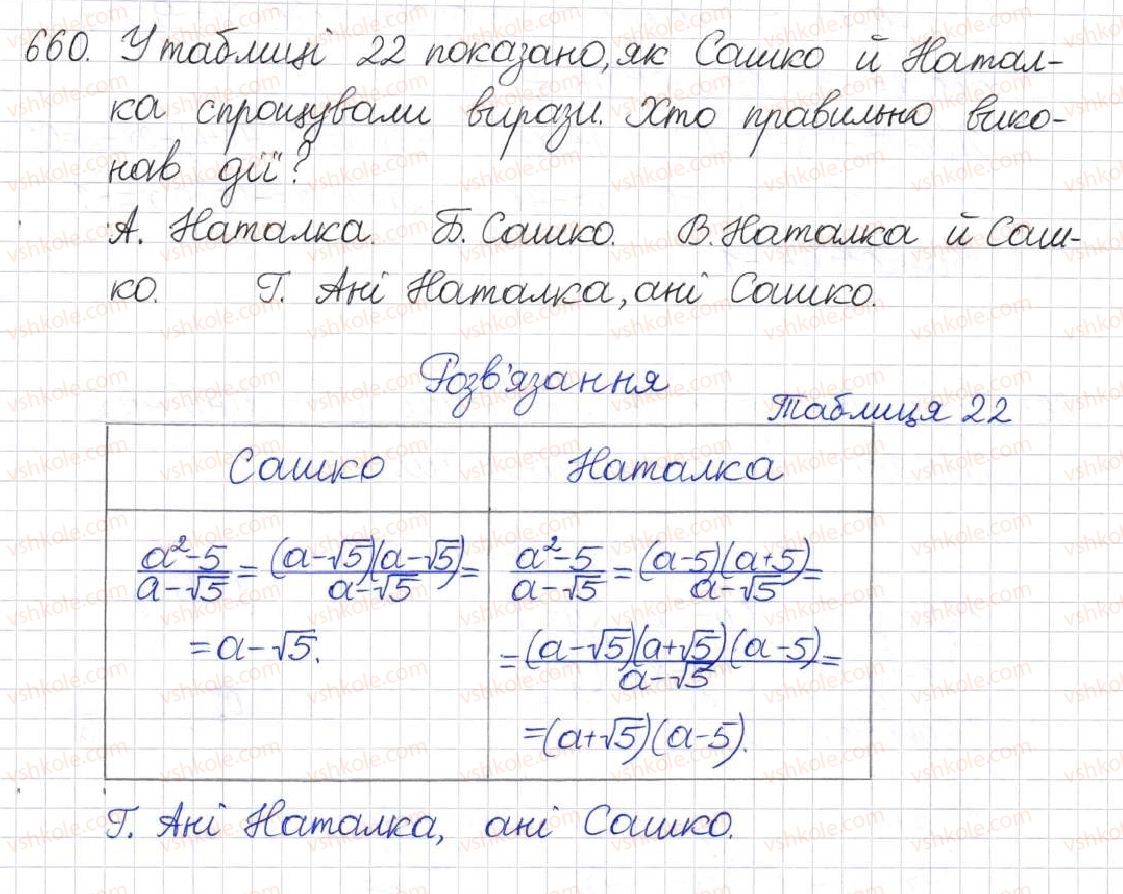 660. У таблиці 22 показано, як Сашко й Натал-
ка спрощували вирази. Хто правильно вико-
нав дії?
А. Наталка. Б. Сашко. В. Наталка й Саш-
ко. Г. Ані Наталка, ані Сашко.
Розв'язання
Таблиця 22
Сашко Наталка
(a²-5)/(a-√5) = ((a-√5)(a-√5))/(a-√5) =
= a-√5.
(a²-5)/(a-√5) = ((a-5)(a+5))/(a-√5) =
= ((a-√5)(a+√5)(a-5))/(a-√5) =
=(a+√5)(a-5).
Г. Ані Наталка, ані Сашко.